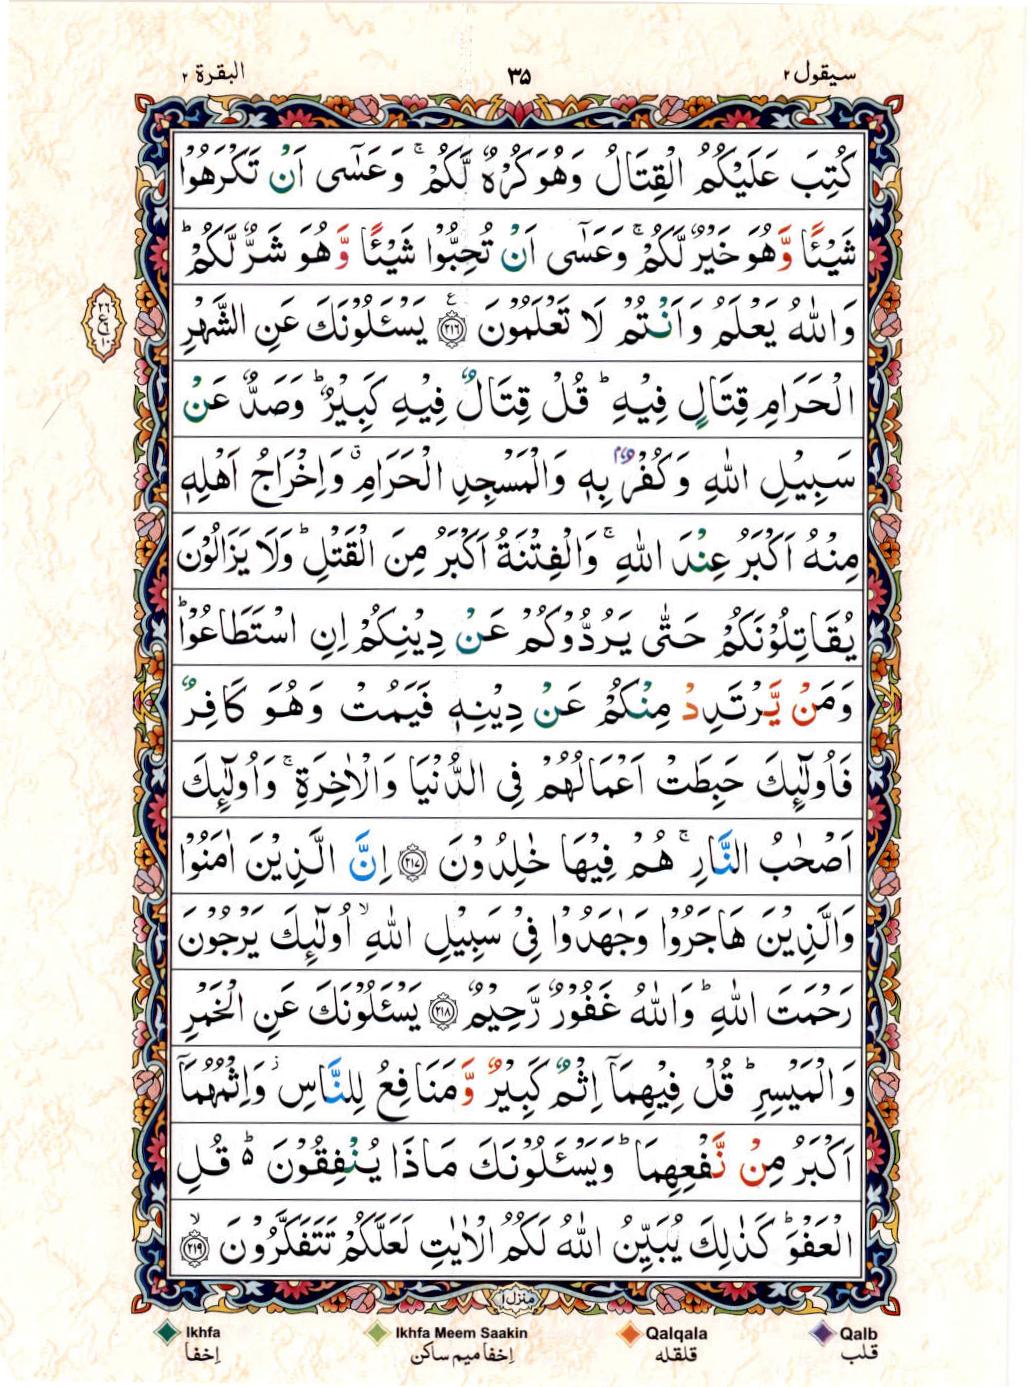 سیقول ۲ ۳۵ البقرة ۲
كُتِبَ عَلَيْكُمُ الْقِتَالُ وَهُوَ كُرْهٌ لَّكُمْ ۚ وَعَسٰٓى اَنْ تَكْرَهُوْا
شَيْـًٔا وَّهُوَ خَيْرٌ لَّكُمْ ۚ وَعَسٰٓى اَنْ تُحِبُّوْا شَيْـًٔا وَّهُوَ شَرٌّ لَّكُمْ ؕ
وَاللّٰهُ يَعْلَمُ وَاَنْتُمْ لَا تَعْلَمُوْنَ ﴿۲۱۶﴾ يَسْـَٔلُوْنَكَ عَنِ الشَّهْرِ
الْحَرَامِ قِتَالٍ فِيْهِ ؕ قُلْ قِتَالٌ فِيْهِ كَبِيْرٌ ؕ وَصَدٌّ عَنْ
سَبِيْلِ اللّٰهِ وَكُفْرٌۢ بِهٖ وَالْمَسْجِدِ الْحَرَامِ ۗ وَاِخْرَاجُ اَهْلِهٖ
مِنْهُ اَكْبَرُ عِنْدَ اللّٰهِ ۚ وَالْفِتْنَةُ اَكْبَرُ مِنَ الْقَتْلِ ؕ وَلَا يَزَالُوْنَ
يُقَاتِلُوْنَكُمْ حَتّٰى يَرُدُّوْكُمْ عَنْ دِيْنِكُمْ اِنِ اسْتَطَاعُوْا ؕ
وَمَنْ يَّرْتَدِدْ مِنْكُمْ عَنْ دِيْنِهٖ فَيَمُتْ وَهُوَ كَافِرٌ
فَاُولٰٓئِكَ حَبِطَتْ اَعْمَالُهُمْ فِى الدُّنْيَا وَالْاٰخِرَةِ ۚ وَاُولٰٓئِكَ
اَصْحٰبُ النَّارِ ۚ هُمْ فِيْهَا خٰلِدُوْنَ ﴿۲۱۷﴾ اِنَّ الَّذِيْنَ اٰمَنُوْا
وَالَّذِيْنَ هَاجَرُوْا وَجٰهَدُوْا فِىْ سَبِيْلِ اللّٰهِ ۙ اُولٰٓئِكَ يَرْجُوْنَ
رَحْمَتَ اللّٰهِ ؕ وَاللّٰهُ غَفُوْرٌ رَّحِيْمٌ ﴿۲۱۸﴾ يَسْـَٔلُوْنَكَ عَنِ الْخَمْرِ
وَالْمَيْسِرِ ؕ قُلْ فِيْهِمَآ اِثْمٌ كَبِيْرٌ وَّمَنَافِعُ لِلنَّاسِ ؗ وَاِثْمُهُمَآ
اَكْبَرُ مِنْ نَّفْعِهِمَا ؕ وَيَسْـَٔلُوْنَكَ مَاذَا يُنْفِقُوْنَ ۬ؕ قُلِ
الْعَفْوَ ؕ كَذٰلِكَ يُبَيِّنُ اللّٰهُ لَكُمُ الْاٰيٰتِ لَعَلَّكُمْ تَتَفَكَّرُوْنَ ۙ﴿۲۱۹﴾
منزل ۱
Ikhfa Ikhfa Meem Saakin Qalqala Qalb
إخفا إخفا میم ساکن قلقله قلب